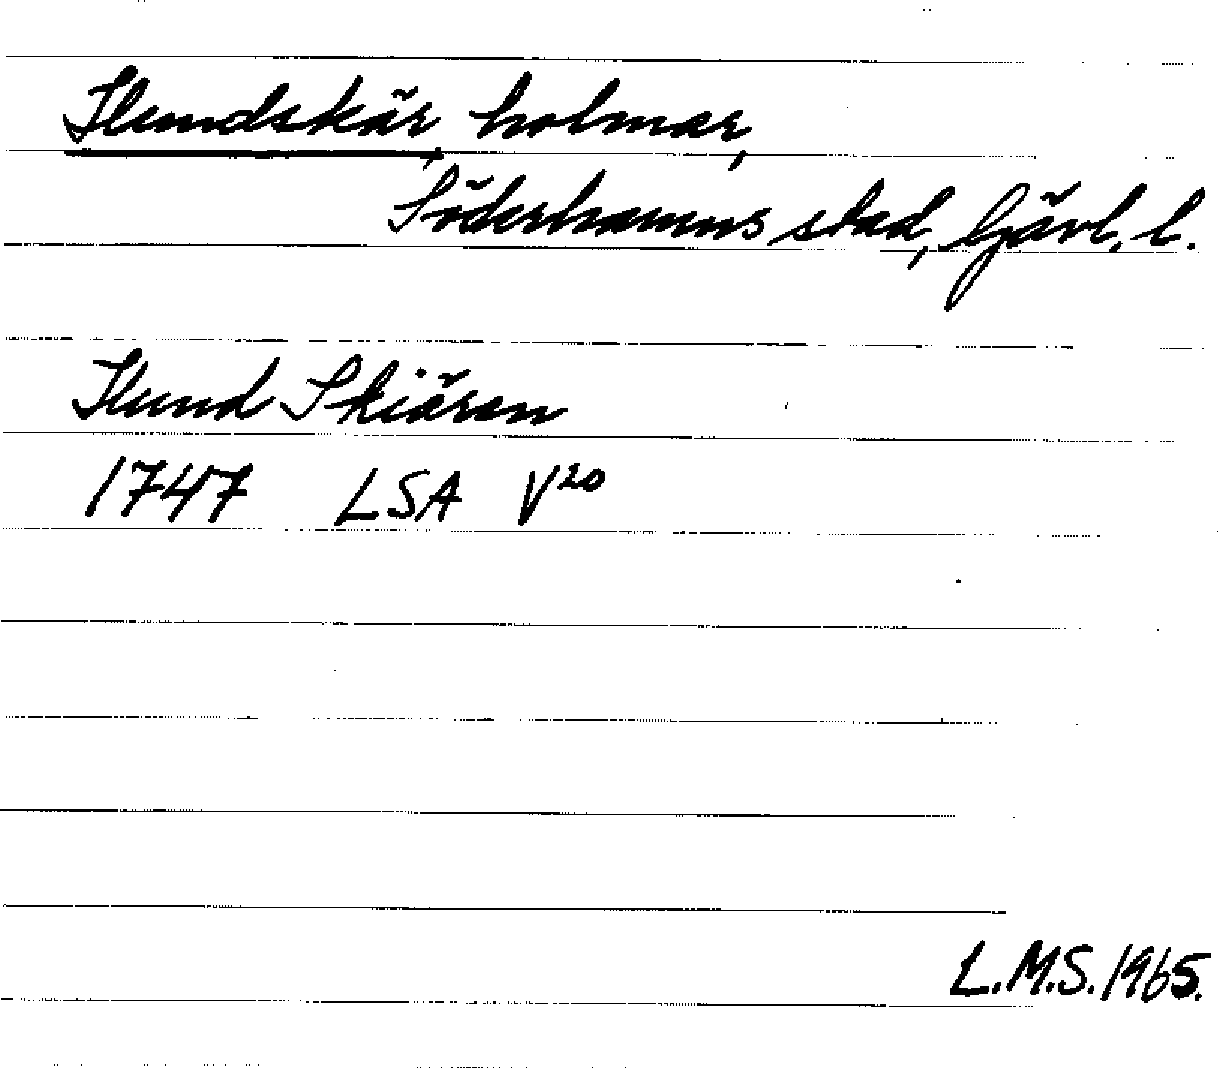 Hundskär, holmar,
Söderhamns stad, Gävl. l.
Hund Skiären
1747 LSA V²⁰
L.M.S. 1965.